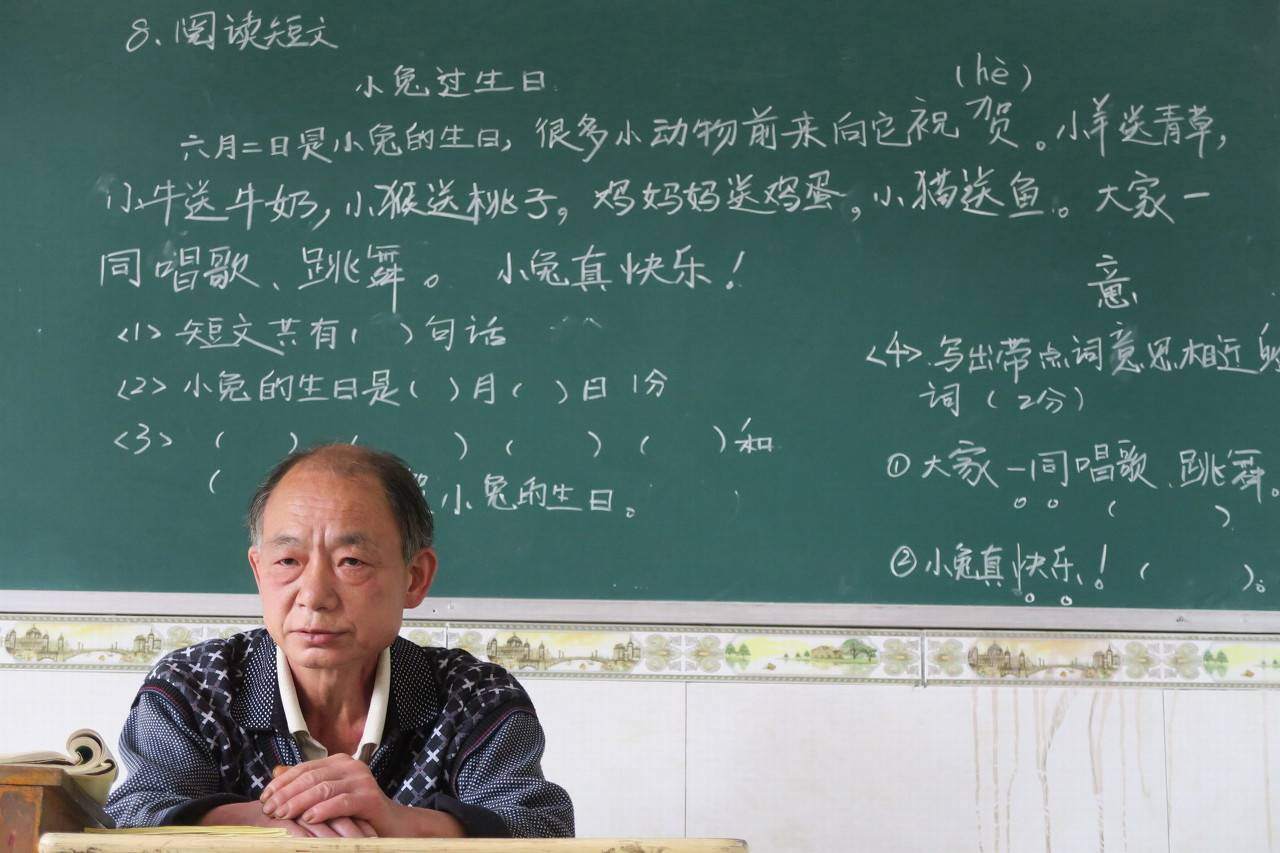 8、阅读短文
小兔过生日
(hè)
六月二日是小兔的生日,很多小动物前来向它祝贺。小羊送青草,
小牛送牛奶,小猴送桃子,鸡妈妈送鸡蛋,小猫送鱼。大家一
同唱歌、跳舞。小兔真快乐!
<1>短文共有( )句话
<2>小兔的生日是( )月( )日 1分
<3> ( ) ( ) ( ) ( )和
( 小兔的生日。
意
<4>写出带点词意思相近的
词(2分)
①大家一同唱歌、跳舞。
( )
②小兔真快乐!( )。